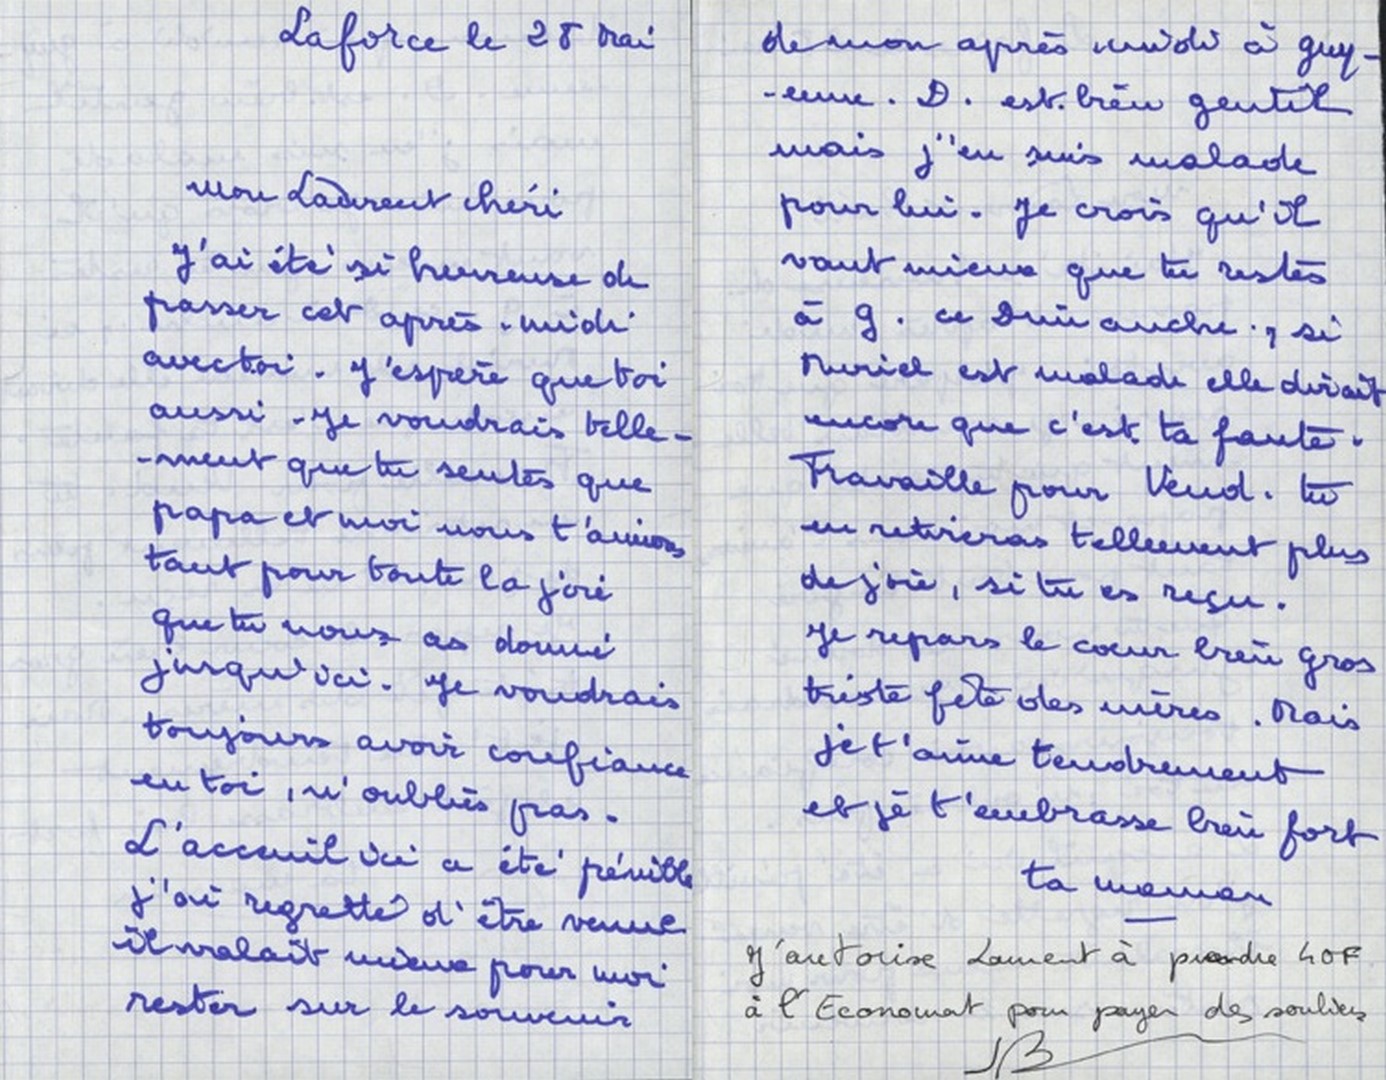 Laforce le 28 Mai
mon Laurent chéri
J'ai été si heureuse de
passer cet après-midi
avec toi. J'espère que toi
aussi. Je voudrais telle-
-ment que tu sentes que
papa et moi nous t'aimons
tant pour toute la joie
que tu nous as donné
jusqu'ici. Je voudrais
toujours avoir confiance
en toi, n'oublies pas.
L'acceuil ici a été pénible
j'ai regretté d'être venue
il valait mieux pour moi
rester sur le souvenir
de mon après midi à guy-
-enne. D. est bien gentil
mais j'en suis malade
pour lui. Je crois qu'il
vaut mieux que tu restes
à G. ce Dimanche, si
Muriel est malade elle dirait
encore que c'est ta faute.
Travaille pour Vend. tu
en retireras tellement plus
de joie, si tu es reçu.
Je repars le coeur bien gros
triste fête des mères. Mais
je t'aime tendrement
et je t'embrasse bien fort
ta maman
J'autorise Laurent à prendre 40F
à l'Economat pour payer des souliers
JB